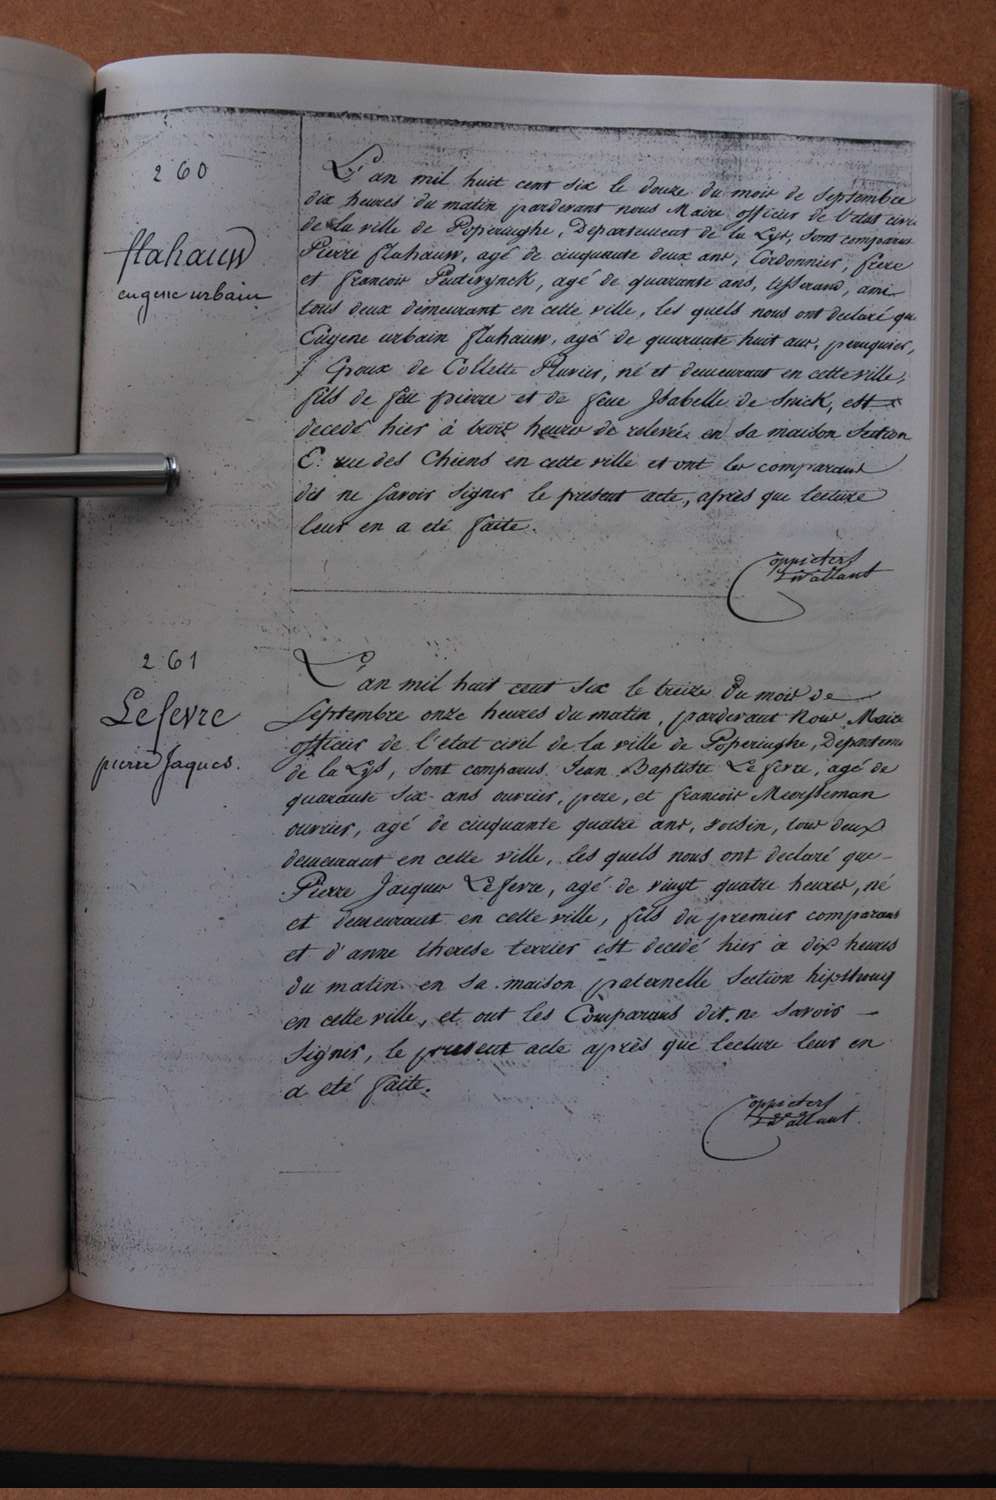 260
flahauw
eugene urbain
L'an mil huit cent six le douze du mois de Septembre
dix heures du matin pardevant nous Maire officier de l'etat civil
de la ville de Poperinghe, Departement de la Lys, sont comparus
Pierre flahauw, agé de cinquante deux ans, Cordonnier, frere
et francois agé de quarante ans, tisserand, ami
tous deux demeurant en cette ville, les quels nous ont declaré que
Eugene urbain flahauw, agé de quarante huit ans, peruquier,
Epoux de Collette Pluvier, né et demeurant en cette ville,
fils de feu pierre et de feue Isabelle de Snick, est
decedé hier à trois heures de relevée en sa maison Section
E: rue des Chiens en cette ville et ont les comparans
dit ne savoir signer le present acte, après que lecture
leur en a eté faite.
Coppieters
t'Wallant
261
Lefevre
pierre Jaques.
L'an mil huit cent six le treize du mois de
Septembre onze heures du matin, pardevant Nous Maire
officier de l'etat civil de la ville de Poperinghe, Departem
de la Lys, sont comparus Jean Baptiste Lefevre, agé de
quarante six ans ouvrier, pere, et francois Meersseman
ouvrier, agé de cinquante quatre ans, voisin, tous deux
demeurant en cette ville, les quels nous ont declaré que
Pierre Jacques Lefevre, agé de vingt quatre heures, né
et demeurant en cette ville, fils du premier comparans
et d'anne therese terrier est decedé hier à dix heures
du matin en sa maison paternelle Section
en cette ville, et ont les Comparans dit ne savoir
signer, le present acte après que lecture leur en
a eté faite.
Coppieters
t'Wallant